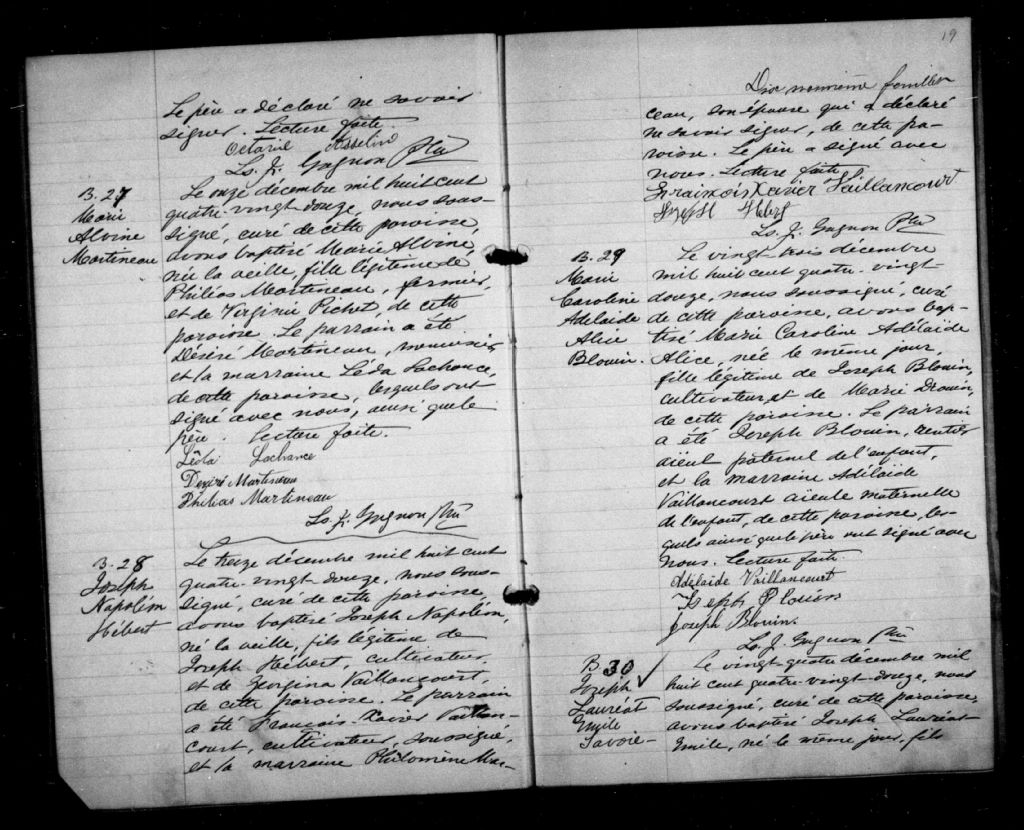 Le père a déclaré ne savoir
signer. Lecture faite.
Octavie Asselin
Ls. J. Gagnon Ptre
B. 27
Marie
Alvine
Martineau
Le onze décembre mil huit cent
quatre-vingt-douze, nous sous-
signé, curé de cette paroisse,
avons baptisé Marie Alvine,
née la veille, fille légitime de
Philéas Martineau, fermier,
et de Virginie Pichet, de cette
paroisse. Le parrain a été
Désiré Martineau, menuisier,
et la marraine Léda Lachance,
de cette paroisse, lesquels ont
signé avec nous, ainsi que le
père. Lecture faite.
Léda Lachance
Desiré Martineau
Philéas Martineau
Ls. J. Gagnon Ptre
B. 28
Joseph
Napoléon
Hébert
Le treize décembre mil huit cent
quatre-vingt-douze, nous sous-
signé, curé de cette paroisse,
avons baptisé Joseph Napoléon,
né la veille, fils légitime de
Joseph Hébert, cultivateur,
et de Georgina Vaillancourt,
de cette paroisse. Le parrain
a été François-Xavier Vaillan-
court, cultivateur, soussigné,
et la marraine Philomène Mar-
19
Dix neuvième feuillet
ceau, son épouse qui a déclaré
ne savoir signer, de cette pa-
roisse. Le père a signé avec
nous. Lecture faite.
Fraincois Xavier Vaillancourt
Joseph Heber
Ls. J. Gagnon Ptre
B. 29
Marie
Caroline
Adelaïde
Alice
Blouin.
Le vingt trois décembre
mil huit cent quatre-vingt-
douze, nous soussigné, curé
de cette paroisse, avons bap-
tisé Marie Caroline Adélaïde
Alice, née le même jour,
fille légitime de Joseph Blouin,
cultivateur, et de Marie Drouin,
de cette paroisse. Le parrain
a été Joseph Blouin, rentier
aïeul paternel de l'enfant,
et la marraine Adélaïde
Vaillancourt aïeule maternelle
de l'enfant, de cette paroisse, les-
quels ainsi que le père ont signé avec
nous. Lecture faite.
Adelaide Vaillancourt
Joseph Blouin
Joseph Blouin.
Ls. J. Gagnon Ptre
B 30
Joseph
Lauréat
Emile
Savoie
Le vingt quatre décembre mil
huit cent quatre-vingt-douze, nous
soussigné, curé de cette paroisse,
avons baptisé Joseph Lauréat
Emile, né le même jour, fils